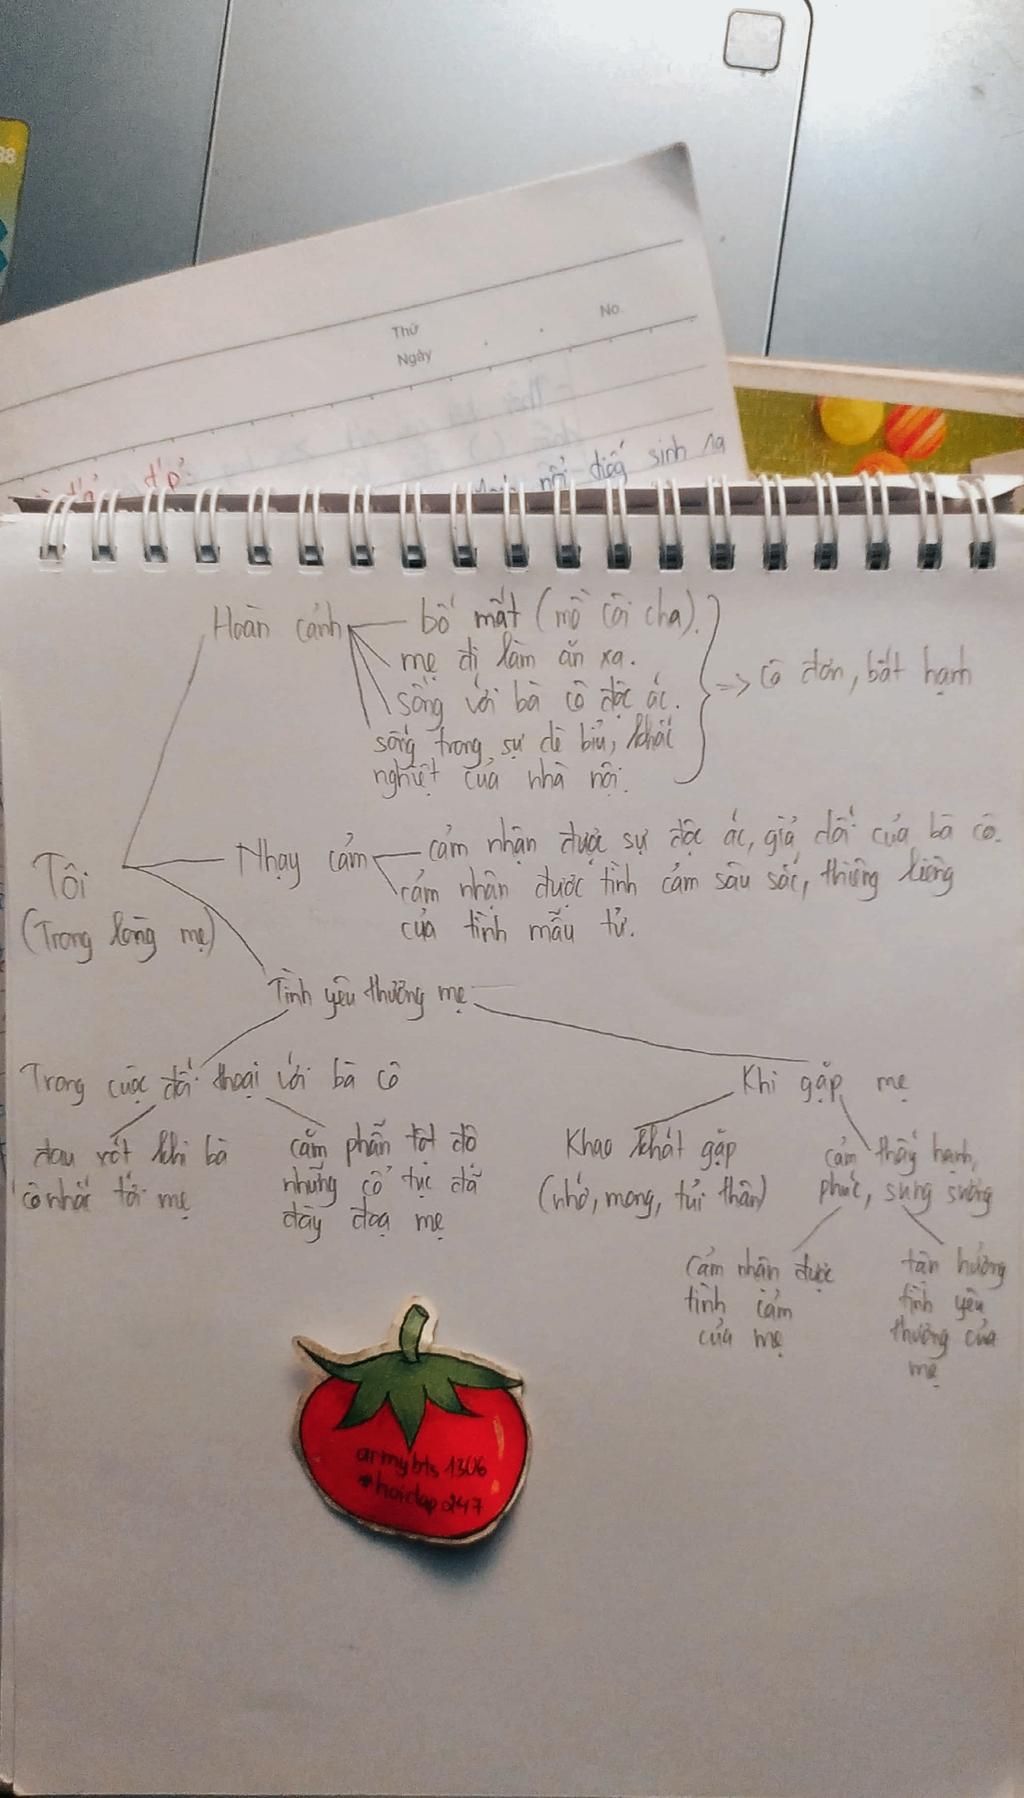 38
Thứ
Ngày
No.
nổi tiếng sinh ra
Hoàn cảnh
bố mất (mồ côi cha).
mẹ đi làm ăn xa.
sống với bà cô độc ác.
sống trong sự dè bỉu, khắc
nghiệt của nhà nội.
=> cô đơn, bất hạnh
Tôi
(Trong lòng mẹ)
Nhạy cảm
cảm nhận được sự độc ác, giả dối của bà cô.
cảm nhận được tình cảm sâu sắc, thiêng liêng
của tình mẫu tử.
Tình yêu thương mẹ
Trong cuộc đối thoại với bà cô
Khi gặp mẹ
đau xót khi bà
cô nhắc tới mẹ
căm phẫn tột độ
những cổ tục đã
đày đoạ mẹ
Khao khát gặp
(nhớ, mong, tủi thân)
cảm thấy hạnh
phúc, sung sướng
cảm nhận được
tình cảm
của mẹ
tận hưởng
tình yêu
thương của
mẹ
armybts1306
#hoidap247